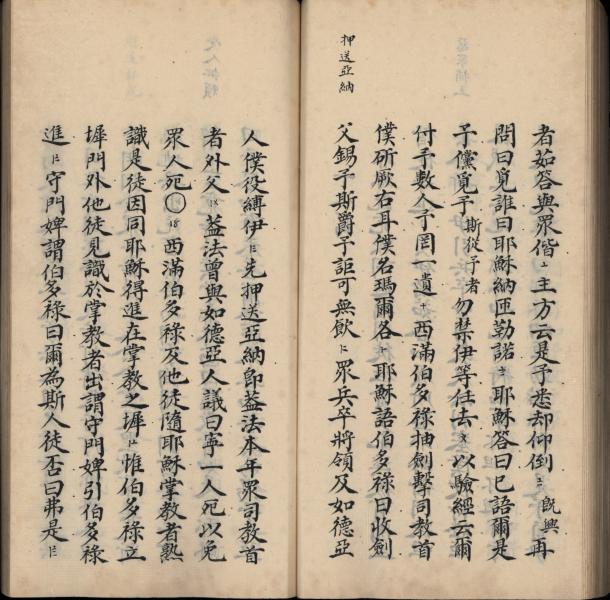 者茹答與眾偕主方云是予悉却仰倒旣興再
問曰覓誰曰耶穌納匝勒諾耶穌答曰已語爾是
予儻覓予斯從予者勿禁伊等任去以驗經云爾
付予數人予罔一遺西滿伯多祿抽劍擊司教首
僕斫厥右耳僕名瑪爾各耶穌語伯多祿曰收劍
父錫予斯爵予詎可無飲眾兵卒將領及如德亞
押送亞納
人僕役縛伊先押送亞納卽葢法本年眾司教首
者外父葢法曾與如德亞人議曰寧一人死以免
眾人死○西滿伯多祿及他徒隨耶穌掌教者熟
識是徒因同耶穌得進在掌教之墀惟伯多祿立
墀門外他徒見識於掌教者出謂守門婢引伯多祿
進守門婢謂伯多祿曰爾為斯人徒否曰弗是